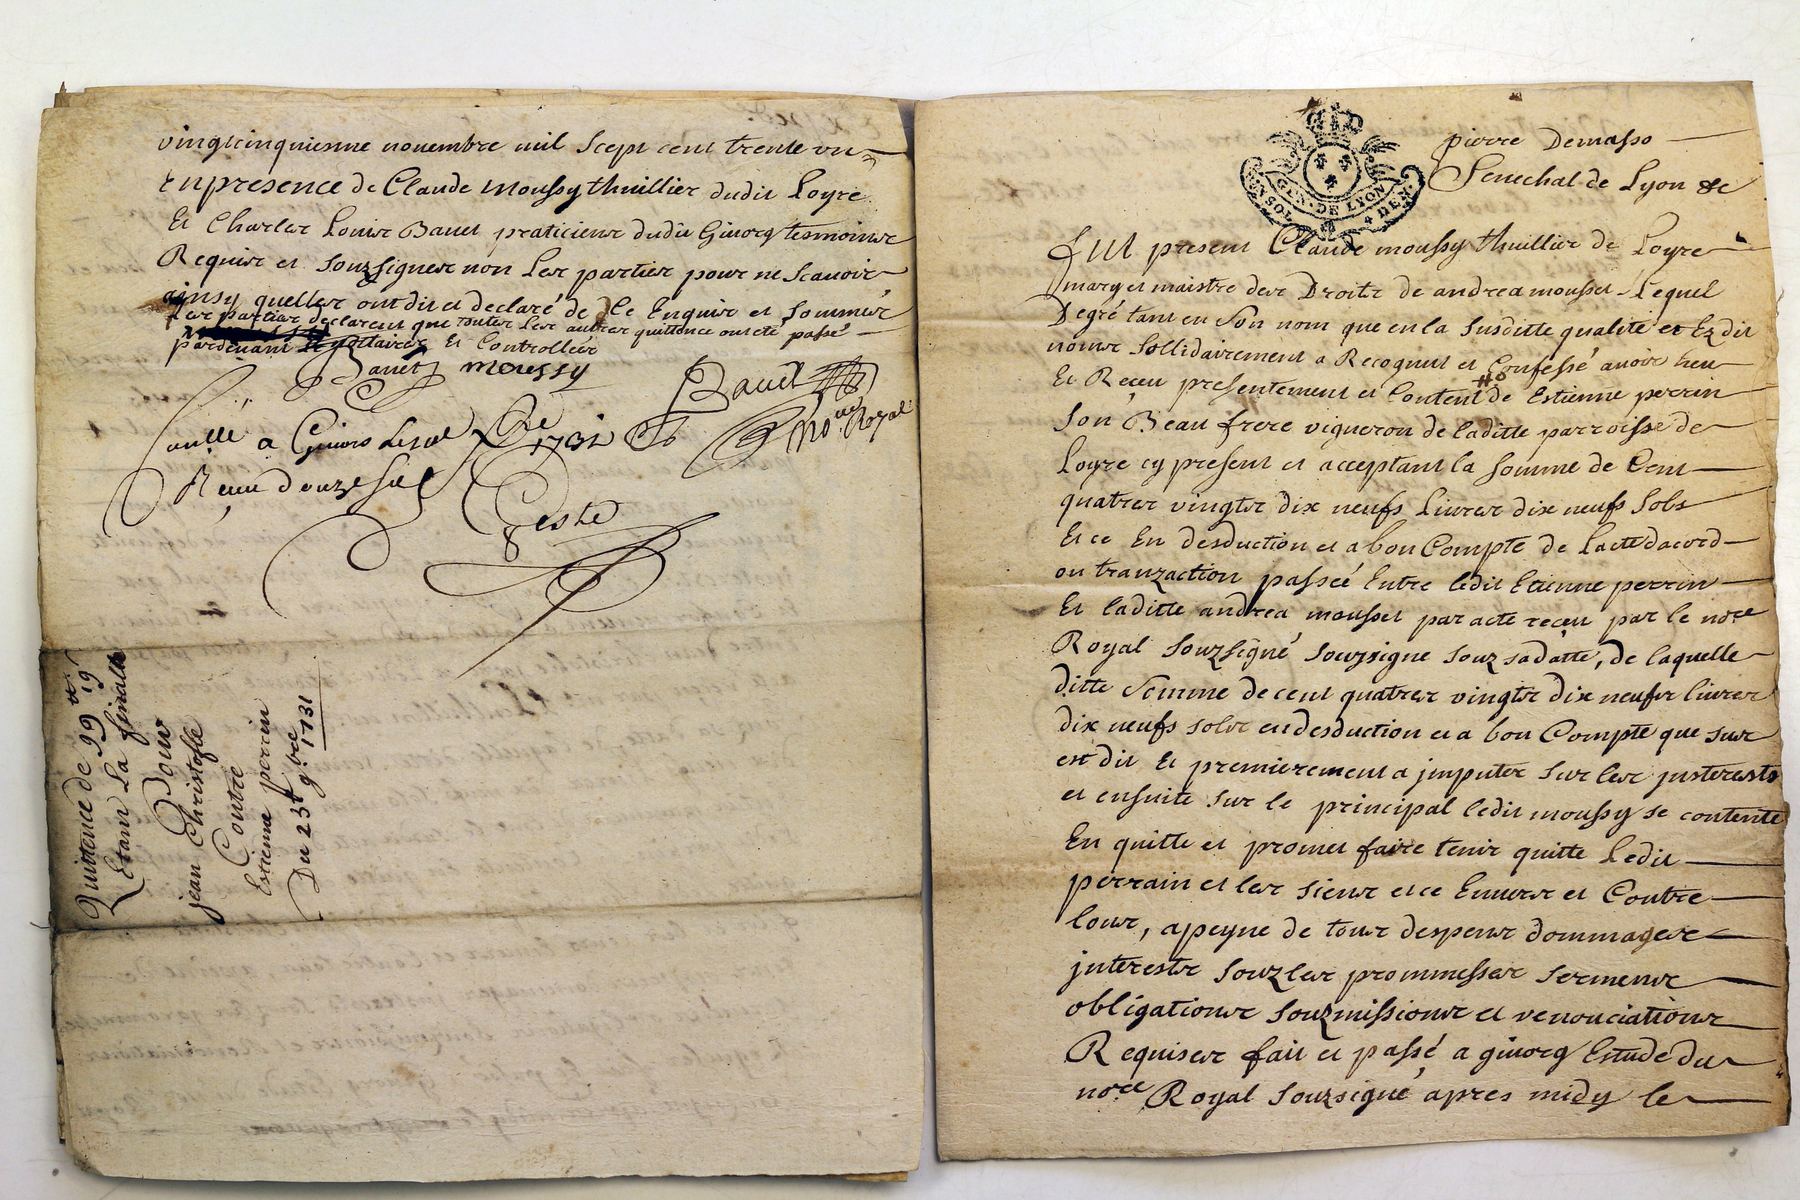 vingtcinquiesme novembre mil Scept cent trente un
En presence de Claude moussy thuillier dudit Loyre
Et Charles Louis Bauet praticiens dudit Givorz tesmoins
Requis et souzsignes non les parties pour ne Scavoir
ainsy quelles ont dit et declaré de ce Enquis et Sommés
Les parties declarent que toutes les autres quittence ont été passé
pardevant notaires Et Controllées
Bauet moussy
Bauet
no.re Royal
a Givors le 1731
Reçu douze sols
Geste
Quittance de 199 ₶ 19 s
Etant La finalle
Pour
jean Christofle
Contre
Estienne perrin
Du 25e 9.bre 1731
pierre Demasso
Senechal de Lyon &c
GEN. DE LYON
UN SOL
DEN.
Fut present Claude moussy thuillier de Loyre
mary et maistre des Droits de andrea mousset, Lequel
Degré tant en Son nom que en la Susditte qualité et Ezdit
noms Sollidairement a Recognut et Confessé avoir heu
Et Reçeu presentement et Content de Estienne perrin
Son Beau frere vigneron de laditte parroisse de
Loyre cy present et acceptant la Somme de Cent
quatres vingts dix neufs Livres dix neufs Sols
Et ce En desduction et a bon Compte de Lacte dacord
ou tranzaction passeé Entre ledit Etienne perrin
Et laditte andrea mousset par acte reçeu par le no.re
Royal Souzsigné souzsigne souz sadatte, de laquelle
ditte Somme de cent quatres vingts dix neufs livres
dix neufs sols en desduction et a bon Compte que sus
est dit Et premierement a jmputer Sur les jnterests
et ensuite Sur le principal ledit moussy se contente
En quitte et promet faire tenir quitte Ledit
perrain et les siens et ce Envers et Contre
tous, apeyne de tous despens dommages
jnterests Souz les prommesses sermens
obligations Souzmissions et renonciations
Requises fait et passé a givorz Estude du
no.re Royal Souzsigné apres midy le